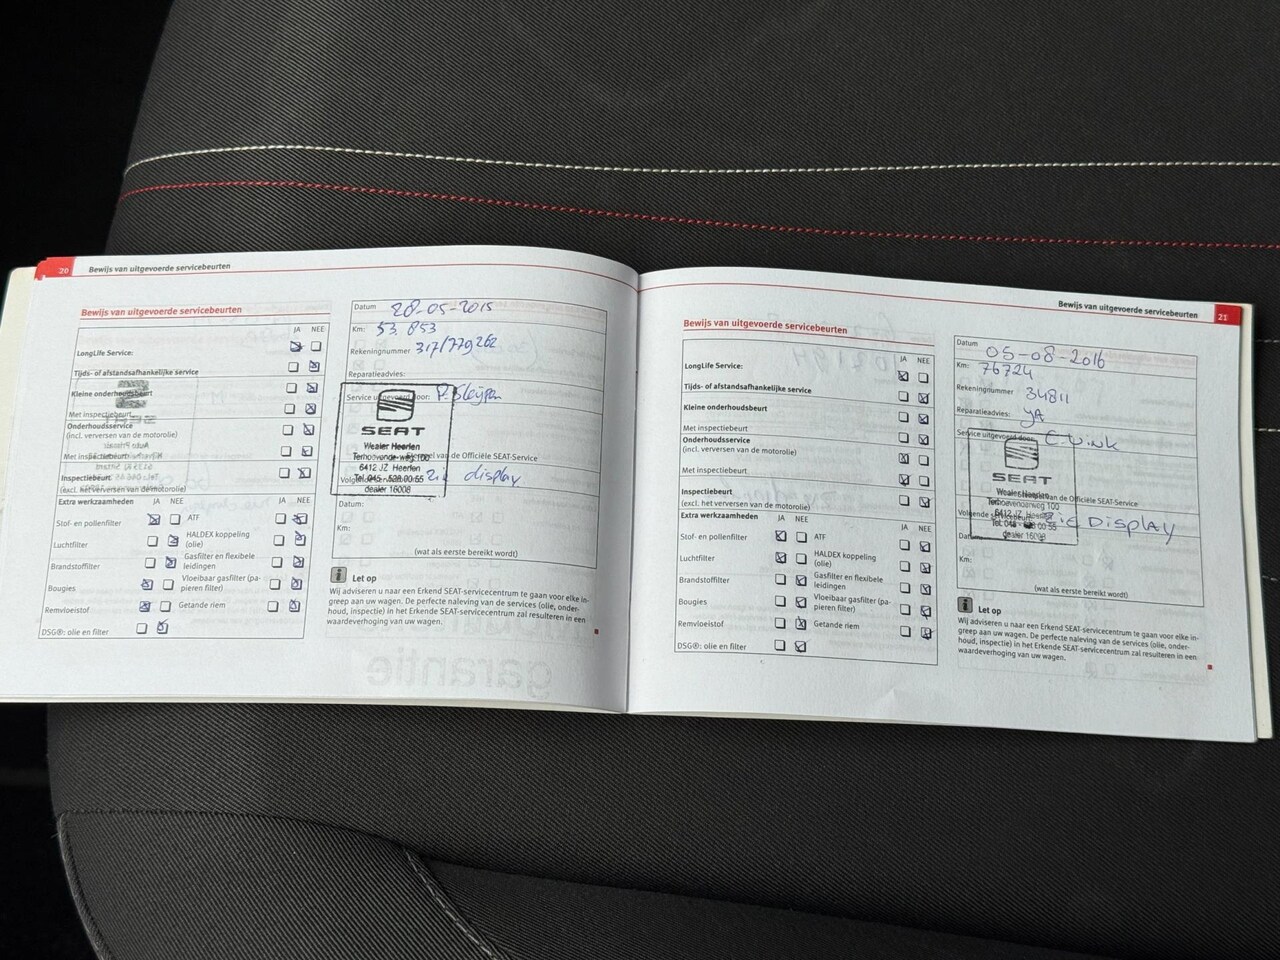 20 Bewijs van uitgevoerde servicebeurten
Bewijs van uitgevoerde servicebeurten
JA NEE
LongLife Service:
Tijds- of afstandsafhankelijke service
Kleine onderhoudsbeurt
Met inspectiebeurt
Onderhoudsservice
(incl. verversen van de motorolie)
Met inspectiebeurt
Inspectiebeurt
(excl. het verversen van de motorolie)
Extra werkzaamheden JA NEE JA NEE
Stof- en pollenfilter ATF
Luchtfilter HALDEX koppeling
(olie)
Brandstoffilter Gasfilter en flexibele
leidingen
Bougies Vloeibaar gasfilter (pa-
pieren filter)
Remvloeistof Getande riem
DSG®: olie en filter
Datum 28-05-2015
Km: 53.853
Rekeningnummer 317/779262
Reparatieadvies:
Service uitgevoerd door:
SEAT
Wealer Heerlen
Terhoevenderweg 100
6412 JZ Heerlen
Tel. 045 - 528 00 55
dealer 16008
Stempel van de Officiële SEAT-Service
Zie display
Datum:
Km:
(wat als eerste bereikt wordt)
i Let op
Wij adviseren u naar een Erkend SEAT-servicecentrum te gaan voor elke in-
greep aan uw wagen. De perfecte naleving van de services (olie, onder-
houd, inspectie) in het Erkende SEAT-servicecentrum zal resulteren in een
waardeverhoging van uw wagen.
garantie
Bewijs van uitgevoerde servicebeurten 21
Bewijs van uitgevoerde servicebeurten
JA NEE
LongLife Service:
Tijds- of afstandsafhankelijke service
Kleine onderhoudsbeurt
Met inspectiebeurt
Onderhoudsservice
(incl. verversen van de motorolie)
Met inspectiebeurt
Inspectiebeurt
(excl. het verversen van de motorolie)
Extra werkzaamheden JA NEE JA NEE
Stof- en pollenfilter ATF
Luchtfilter HALDEX koppeling
(olie)
Brandstoffilter Gasfilter en flexibele
leidingen
Bougies Vloeibaar gasfilter (pa-
pieren filter)
Remvloeistof Getande riem
DSG®: olie en filter
Datum 05-08-2016
Km: 76724
Rekeningnummer 34811
Reparatieadvies: YA
Service uitgevoerd door:
SEAT
Wealer Heerlen
Terhoevenderweg 100
6412 JZ Heerlen
Tel. 045 - 528 00 55
dealer 16008
Stempel van de Officiële SEAT-Service
Volgende servicebeurt Zie DISPLAY
Datum:
Km:
(wat als eerste bereikt wordt)
i Let op
Wij adviseren u naar een Erkend SEAT-servicecentrum te gaan voor elke in-
greep aan uw wagen. De perfecte naleving van de services (olie, onder-
houd, inspectie) in het Erkende SEAT-servicecentrum zal resulteren in een
waardeverhoging van uw wagen.